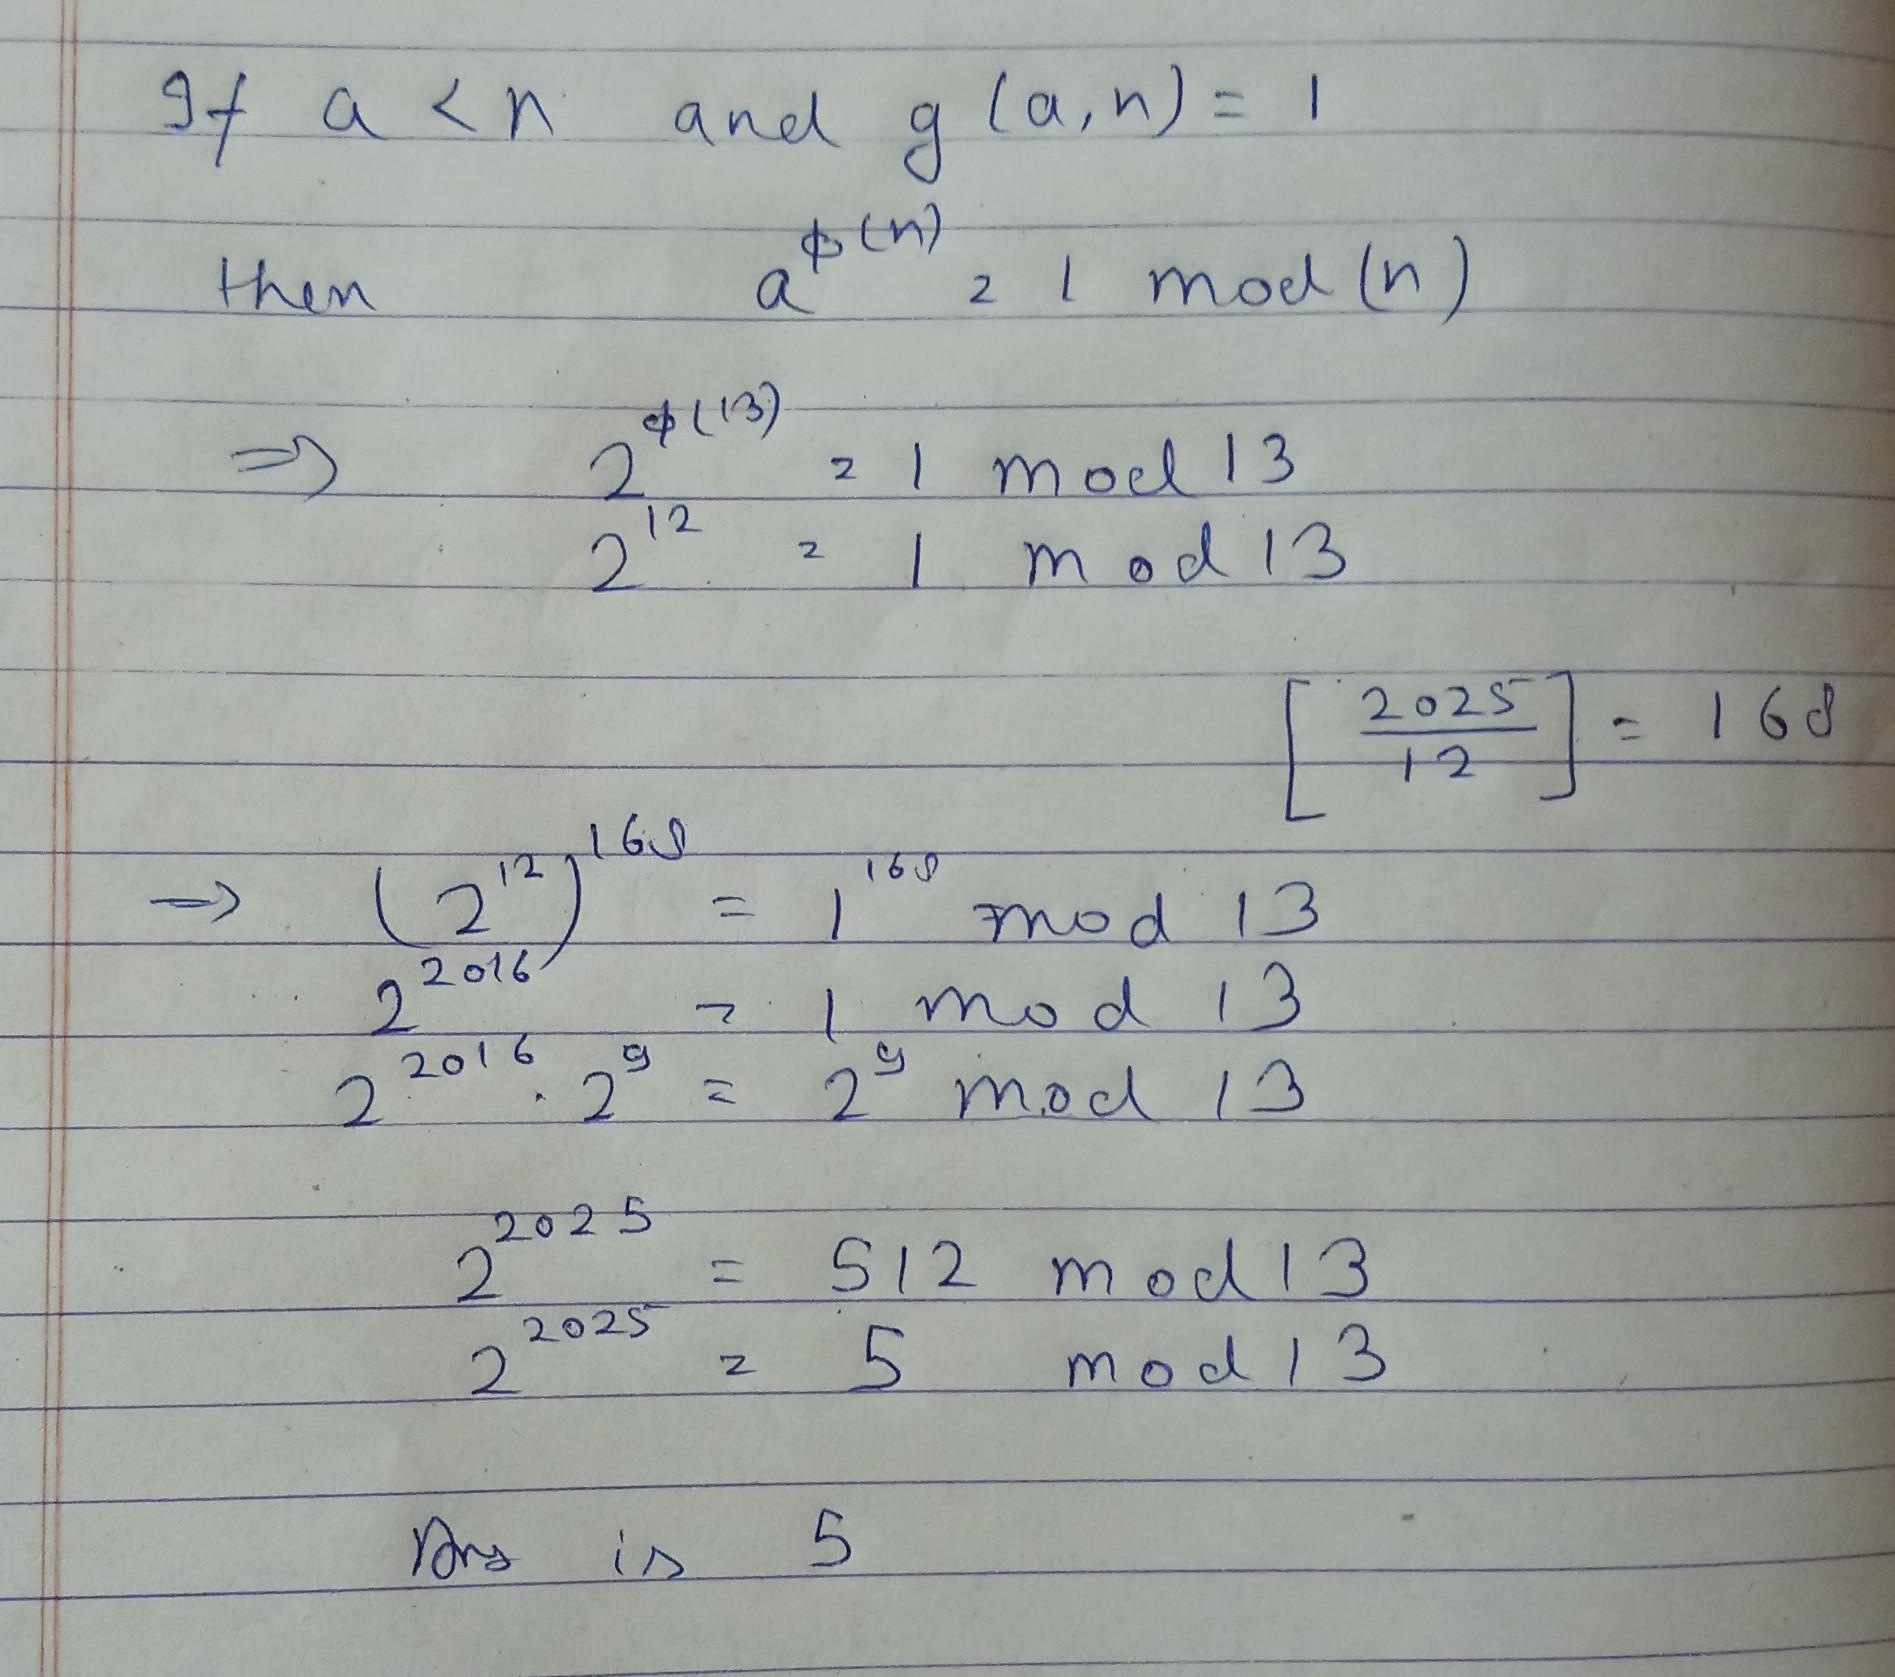 If a < n and g(a,n) = 1
then a^ϕ(n) = 1 mod (n)
⇒ 2^ϕ(13) = 1 mod 13
2^12 = 1 mod 13
[2025/12] = 168
⇒ (2^12)^168 = 1^168 mod 13
2^2016 = 1 mod 13
2^2016 . 2^9 = 2^9 mod 13
2^2025 = 512 mod 13
2^2025 = 5 mod 13
Ans is 5